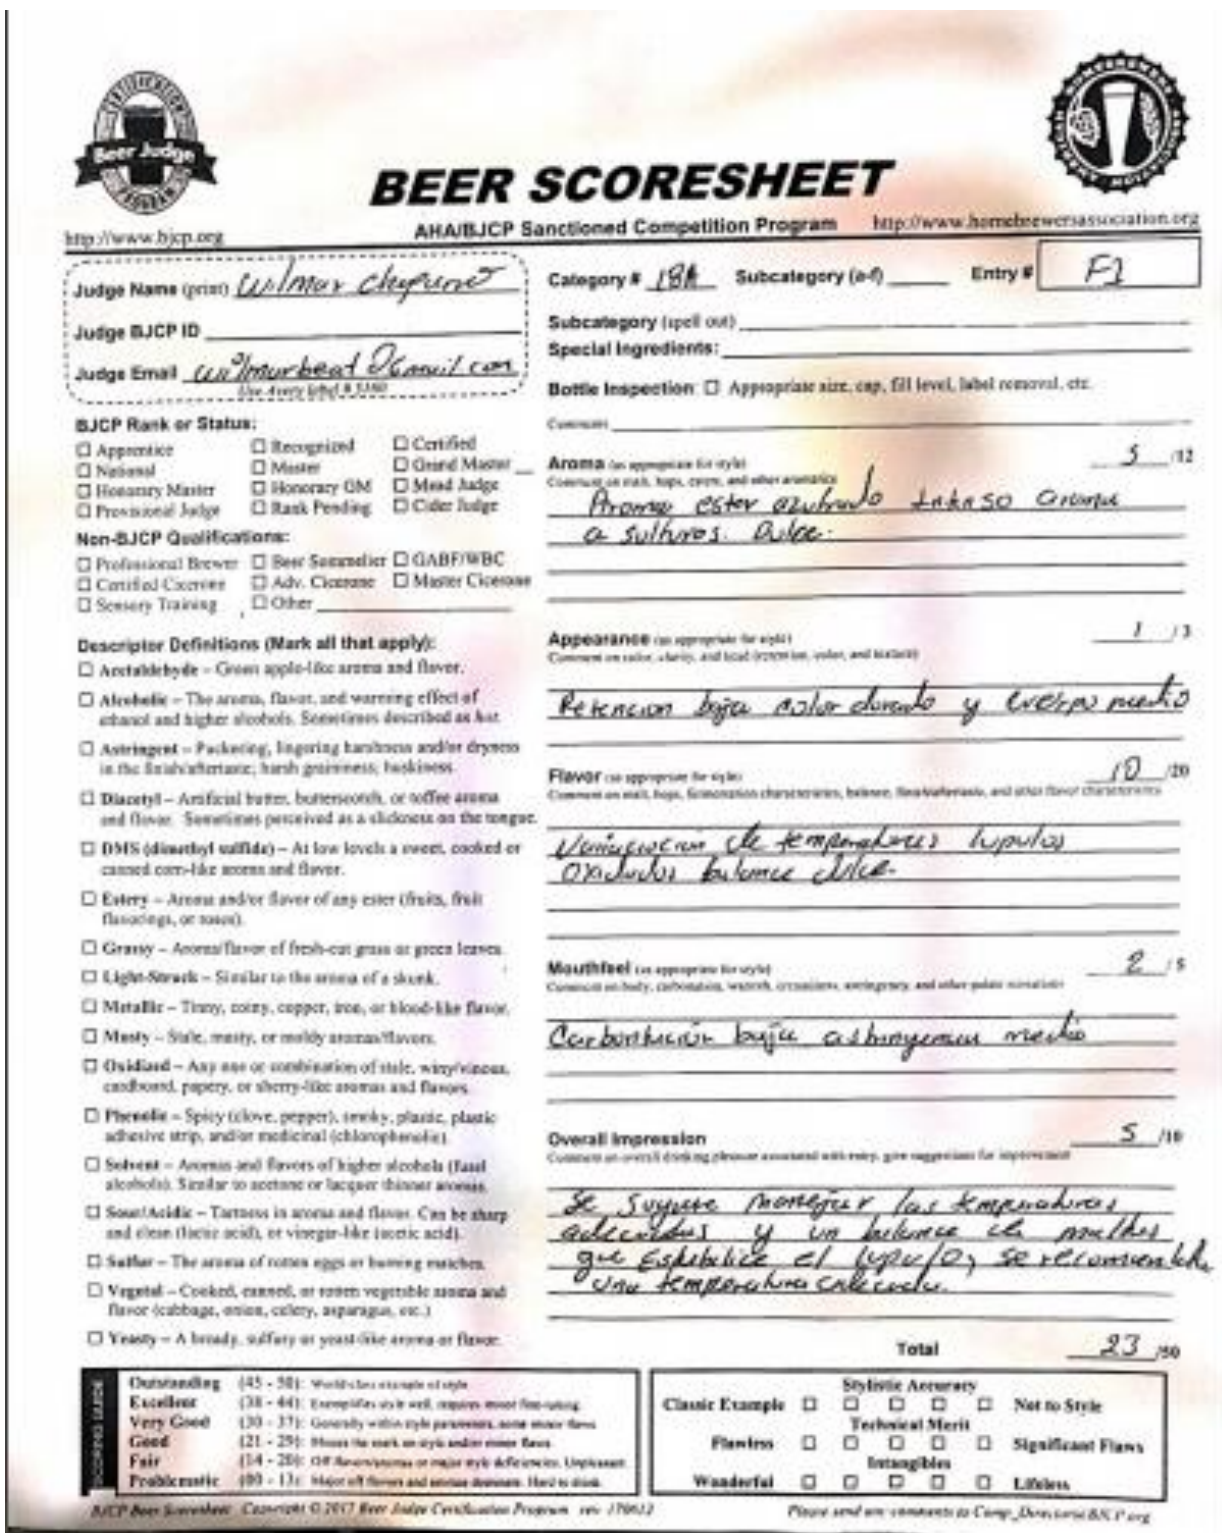 CERTIFICATION
Beer Judge
PROGRAM
AMERICAN HOMEBREWERS ASSOCIATION
BEER SCORESHEET
http://www.bjcp.org
AHA/BJCP Sanctioned Competition Program
http://www.homebrewersassociation.org
Judge Name (print) Wilmar
Judge BJCP ID
Judge Email
Use Avery label # 5160
BJCP Rank or Status:
☐ Apprentice ☐ Recognized ☐ Certified
☐ National ☐ Master ☐ Grand Master
☐ Honorary Master ☐ Honorary GM ☐ Mead Judge
☐ Provisional Judge ☐ Rank Pending ☐ Cider Judge
Non-BJCP Qualifications:
☐ Professional Brewer ☐ Beer Sommelier ☐ GABF/WBC
☐ Certified Cicerone ☐ Adv. Cicerone ☐ Master Cicerone
☐ Sensory Training ☐ Other
Descriptor Definitions (Mark all that apply):
☐ Acetaldehyde – Green apple-like aroma and flavor.
☐ Alcoholic – The aroma, flavor, and warming effect of
ethanol and higher alcohols. Sometimes described as hot.
☐ Astringent – Puckering, lingering harshness and/or dryness
in the finish/aftertaste; harsh graininess; huskiness.
☐ Diacetyl – Artificial butter, butterscotch, or toffee aroma
and flavor. Sometimes perceived as a slickness on the tongue.
☐ DMS (dimethyl sulfide) – At low levels a sweet, cooked or
canned corn-like aroma and flavor.
☐ Estery – Aroma and/or flavor of any ester (fruits, fruit
flavorings, or roses).
☐ Grassy – Aroma/flavor of fresh-cut grass or green leaves.
☐ Light-Struck – Similar to the aroma of a skunk.
☐ Metallic – Tinny, coiny, copper, iron, or blood-like flavor.
☐ Musty – Stale, musty, or moldy aromas/flavors.
☐ Oxidized – Any one or combination of stale, winy/vinous,
cardboard, papery, or sherry-like aromas and flavors.
☐ Phenolic – Spicy (clove, pepper), smoky, plastic, plastic
adhesive strip, and/or medicinal (chlorophenolic).
☐ Solvent – Aromas and flavors of higher alcohols (fusel
alcohols). Similar to acetone or lacquer thinner aromas.
☐ Sour/Acidic – Tartness in aroma and flavor. Can be sharp
and clean (lactic acid), or vinegar-like (acetic acid).
☐ Sulfur – The aroma of rotten eggs or burning matches.
☐ Vegetal – Cooked, canned, or rotten vegetable aroma and
flavor (cabbage, onion, celery, asparagus, etc.)
☐ Yeasty – A bready, sulfury or yeast-like aroma or flavor.
Category # 18A Subcategory (a-f) Entry # F1
Subcategory (spell out)
Special Ingredients:
Bottle Inspection: ☐ Appropriate size, cap, fill level, label removal, etc.
Comments
Aroma (as appropriate for style) 5 /12
Comment on malt, hops, esters, and other aromatics
Aroma ester intenso aroma
a sulfuros. Dulce.
Appearance (as appropriate for style) 1 /3
Comment on color, clarity, and head (retention, color, and texture)
Retencion baja color dorado y cuerpo medio
Flavor (as appropriate for style) 10 /20
Comment on malt, hops, fermentation characteristics, balance, finish/aftertaste, and other flavor characteristics
de temperaturas lupulos
oxidados balance dulce.
Mouthfeel (as appropriate for style) 2 /5
Comment on body, carbonation, warmth, creaminess, astringency, and other palate sensations
Carbonatación baja medio
Overall Impression 5 /10
Comment on overall drinking pleasure associated with entry, give suggestions for improvement
Se sugiere manejar las temperaturas
adecuadas y un balance de maltas
que estabilice el lupulo, se recomienda
una temperatura adecuada.
Total 23 /50
SCORING GUIDE
Outstanding (45 - 50): World-class example of style.
Excellent (38 - 44): Exemplifies style well, requires minor fine-tuning.
Very Good (30 - 37): Generally within style parameters, some minor flaws.
Good (21 - 29): Misses the mark on style and/or minor flaws.
Fair (14 - 20): Off flavors/aromas or major style deficiencies. Unpleasant.
Problematic (00 - 13): Major off flavors and aromas dominate. Hard to drink.
Stylistic Accuracy
Classic Example ☐ ☐ ☐ ☐ ☐ Not to Style
Technical Merit
Flawless ☐ ☐ ☐ ☐ ☐ Significant Flaws
Intangibles
Wonderful ☐ ☐ ☐ ☐ ☐ Lifeless
BJCP Beer Scoresheet Copyright © 2017 Beer Judge Certification Program rev. 170612
Please send any comments to Comp_Director@BJCP.org